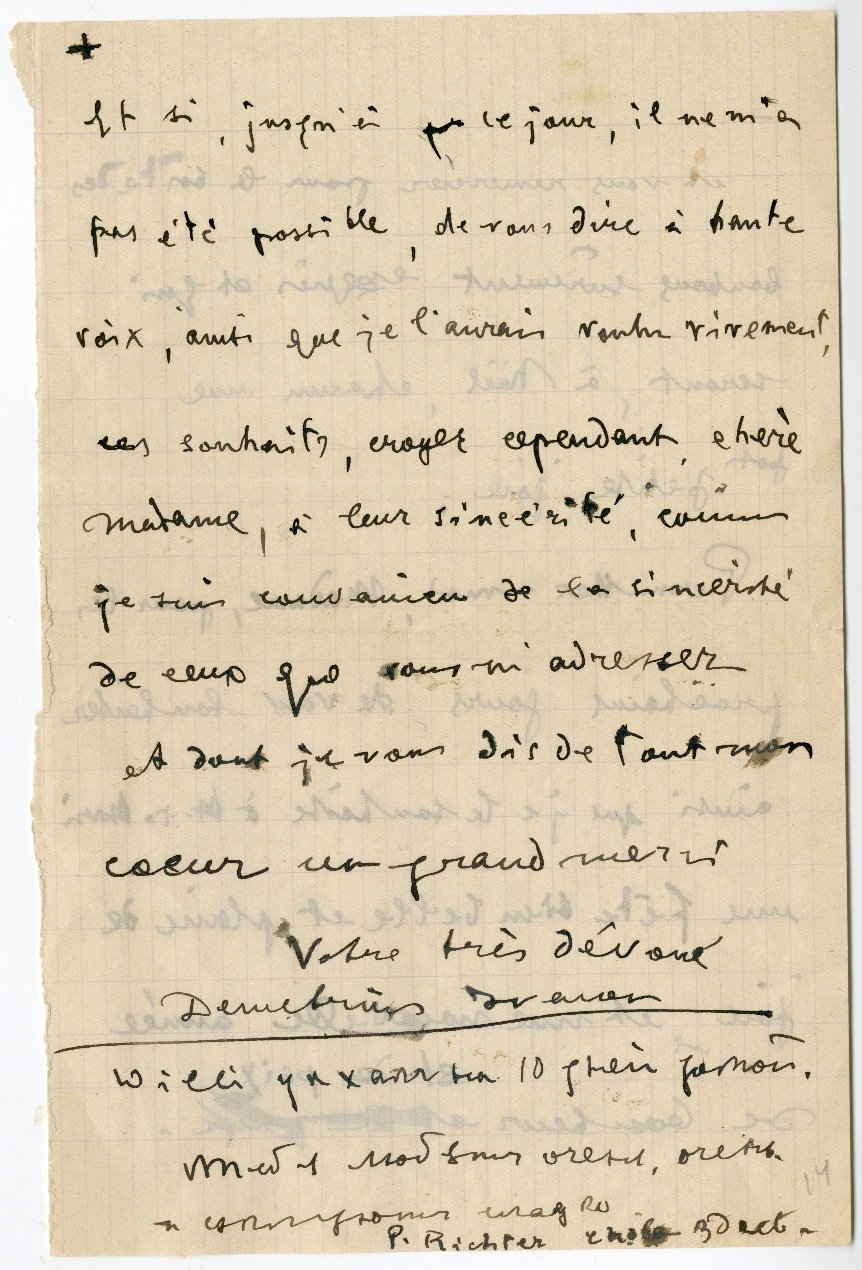 +
Et si, jusqu'à ce jour, il ne m'a
pas été possible, de vous dire à haute
voix, ainsi que je l'aurais voulu vivement,
ces souhaits, croyez cependant, chère
Madame, à leur sincérité, comme
je suis convaincu de la sincérité
de ceux que vous m'adressez
et dont je vous dis de tout mon
cœur un grand merci
Votre très dévoué
Demetrius Ivanov
Willi 10
P. Richter